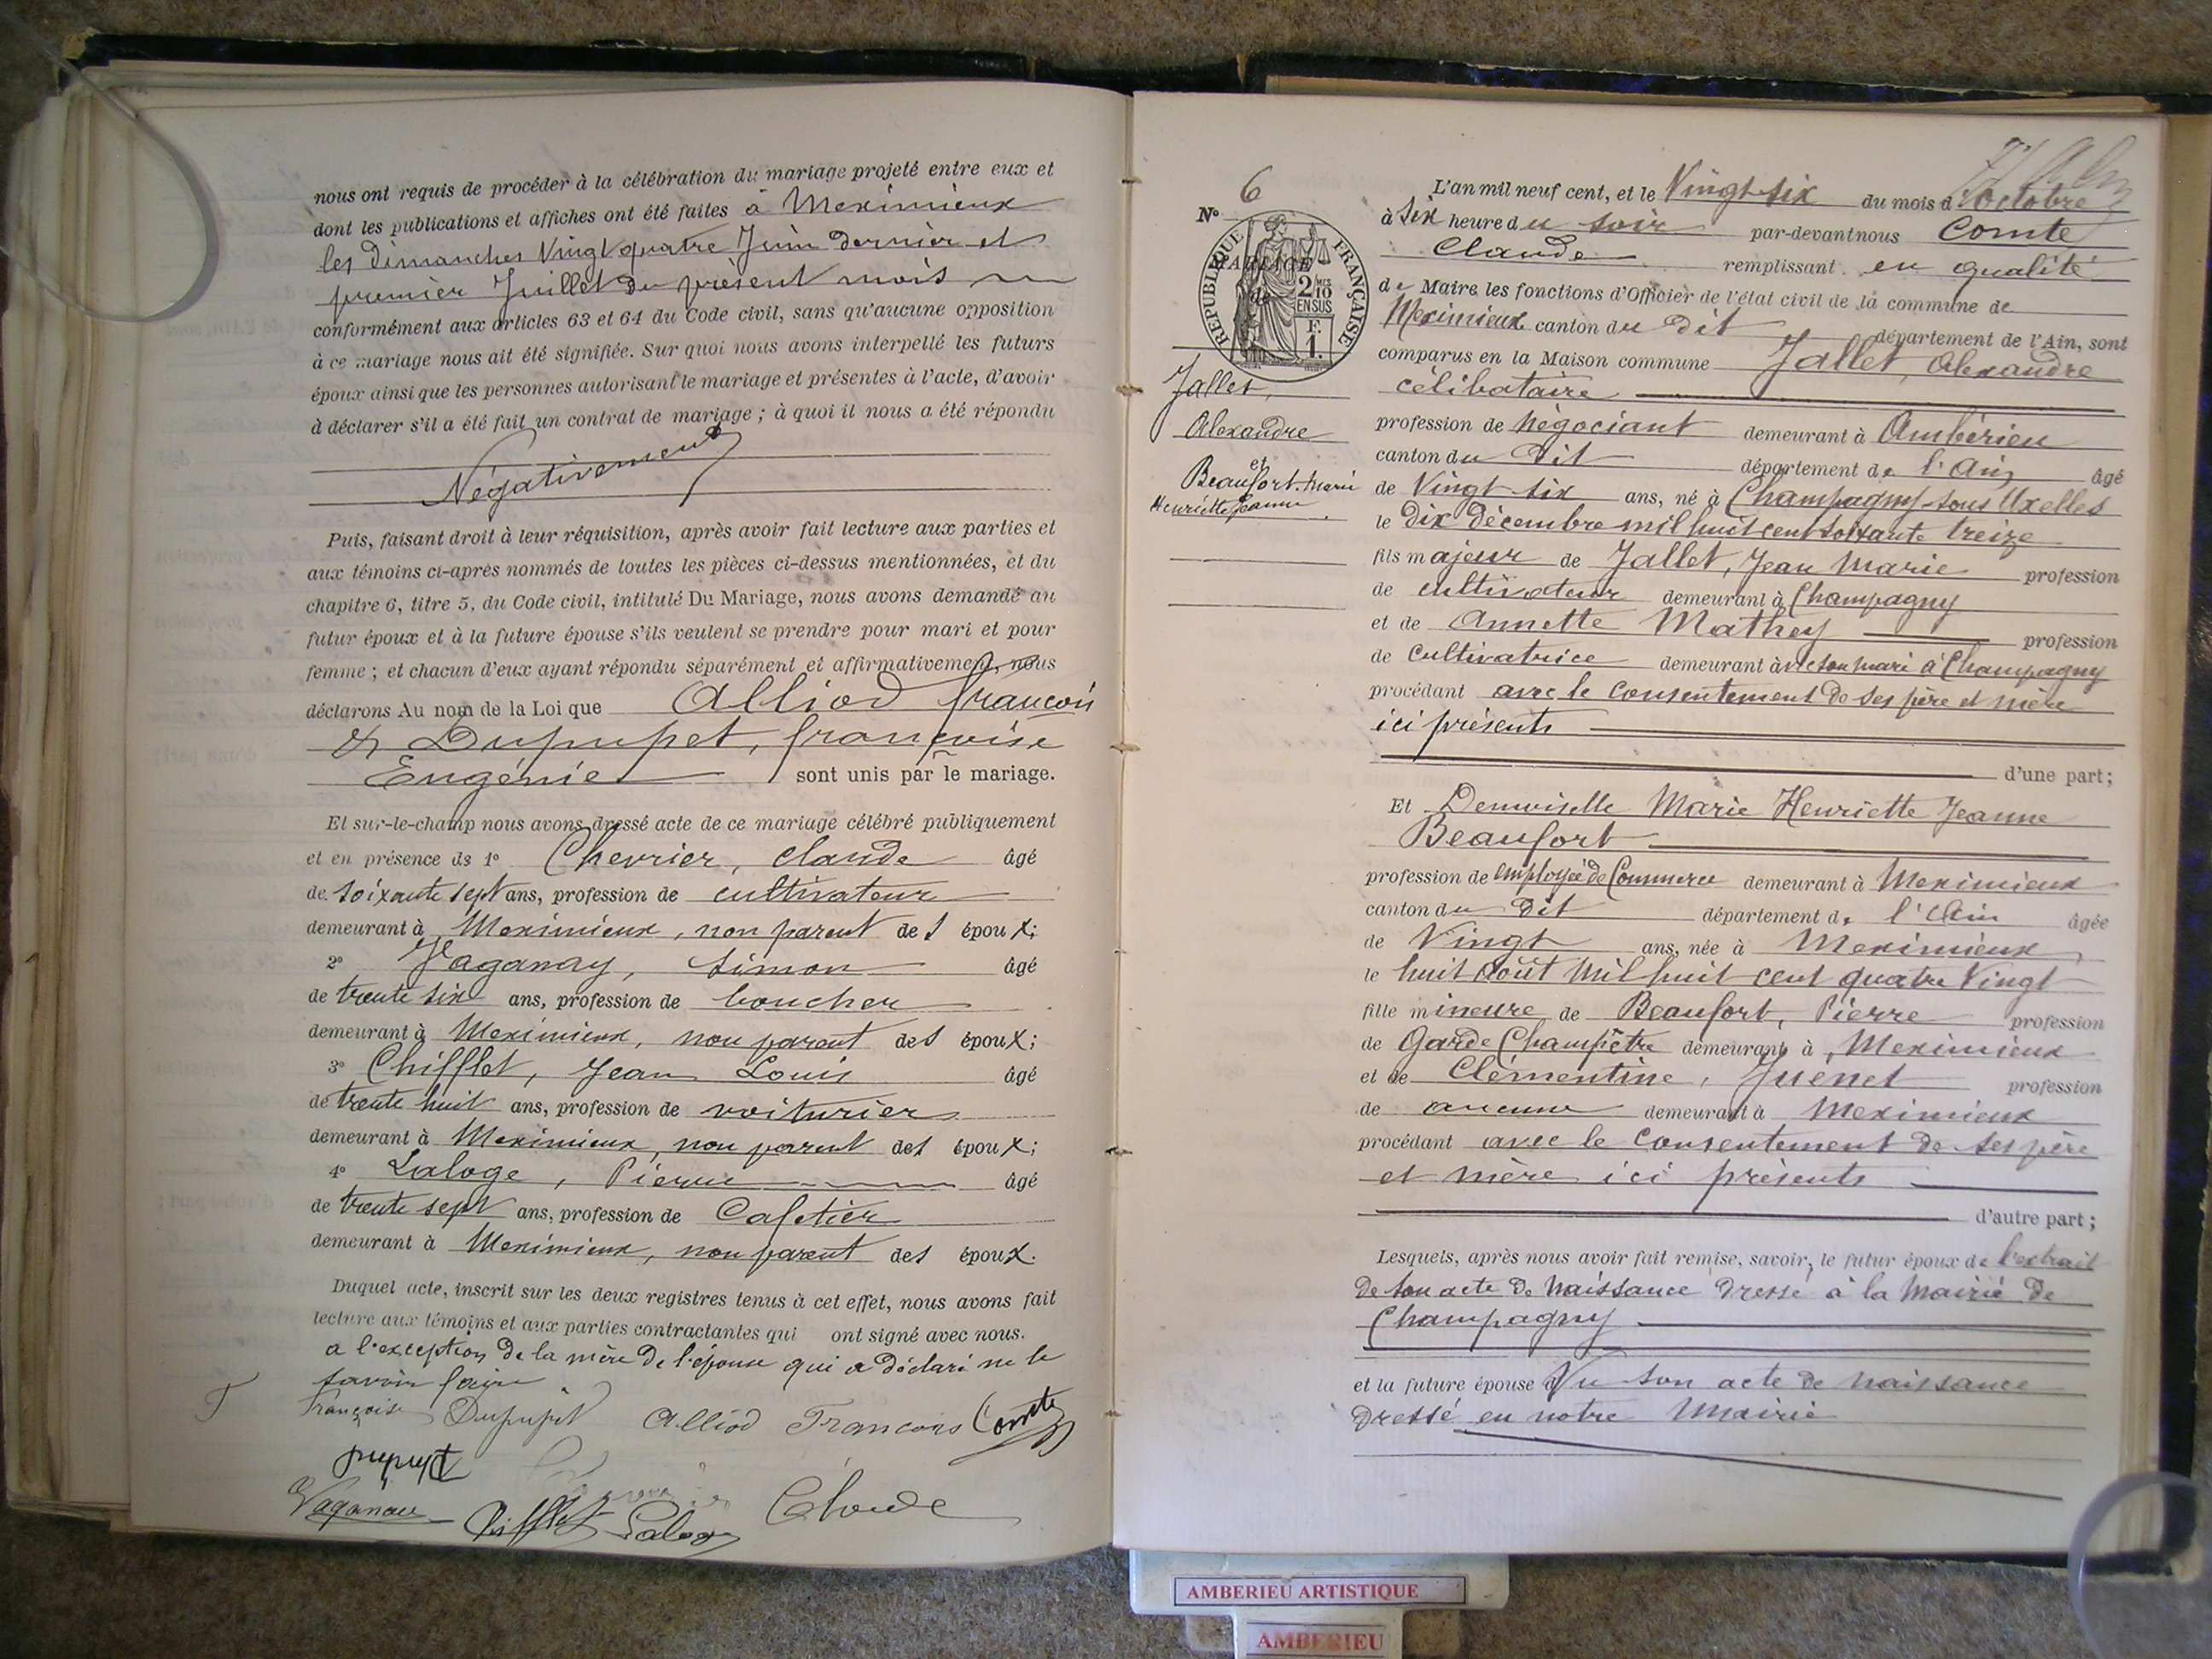 nous ont requis de procéder à la célébration du mariage projeté entre eux et
dont les publications et affiches ont été faites à Meximieux
les dimanches Vingt quatre Juin dernier et
premier Juillet du présent mois
conformément aux articles 63 et 64 du Code civil, sans qu'aucune opposition
à ce mariage nous ait été signifiée. Sur quoi nous avons interpellé les futurs
époux ainsi que les personnes autorisant le mariage et présentes à l'acte, d'avoir
à déclarer s'il a été fait un contrat de mariage ; à quoi il nous a été répondu
Négativement
Puis, faisant droit à leur réquisition, après avoir fait lecture aux parties et
aux témoins ci-après nommés de toutes les pièces ci-dessus mentionnées, et du
chapitre 6, titre 5, du Code civil, intitulé Du Mariage, nous avons demandé au
futur époux et à la future épouse s'ils veulent se prendre pour mari et pour
femme ; et chacun d'eux ayant répondu séparément et affirmativement, nous
déclarons Au nom de la Loi que Alliod françois
& Dupupet, françoise
Eugénie sont unis par le mariage.
Et sur-le-champ nous avons dressé acte de ce mariage célébré publiquement
et en présence ds 1° Chevrier, claude âgé
de soixante sept ans, profession de cultivateur
demeurant à Meximieux, non parent des époux;
2° Vaganay, Simon âgé
de trente six ans, profession de boucher
demeurant à Meximieux, non parent des époux;
3° Chifflet, Jean Louis âgé
de trente huit ans, profession de voiturier
demeurant à Meximieux, non parent des époux;
4° Laloge, Pierre âgé
de trente sept ans, profession de Cafetier
demeurant à Meximieux, non parent des époux.
Duquel acte, inscrit sur les deux registres tenus à cet effet, nous avons fait
lecture aux témoins et aux parties contractantes qui ont signé avec nous.
a l'exception de la mère de l'épouse qui a déclaré ne le
savoir faire
Françoise Dupupet Alliod Francois Comte
Dupupet
Vaganay Chifflet Laloge Claude
N° 6
RÉPUBLIQUE FRANÇAISE
MARIAGE
de
2/10 EN SUS
F. 1.
Jallet,
Alexandre
et
Beaufort Marie
Henriette Jeanne
L'an mil neuf cent, et le Vingt six du mois d'octobre
à six heure du soir par-devant nous Comte
Claude remplissant en qualité
de Maire les fonctions d'Officier de l'état civil de la commune de
Meximieux canton du dit département de l'Ain, sont
comparus en la Maison commune Jallet, Alexandre
célibataire
profession de Négociant demeurant à Ambérieu
canton du dit département de l'Ain âgé
de Vingt six ans, né à Champagny-sous Uxelles
le dix décembre mil huit cent soixante treize
fils majeur de Jallet, Jean Marie profession
de cultivateur demeurant à Champagny
et de Annette Mathey profession
de Cultivatrice demeurant avec son mari à Champagny
procédant avec le consentement de ses père et mère
ici présents
d'une part;
Et Demoiselle Marie Henriette Jeanne
Beaufort
profession de employée de Commerce demeurant à Meximieux
canton du dit département de l'Ain âgée
de Vingt ans, née à Meximieux
le huit août mil huit cent quatre Vingt
fille mineure de Beaufort, Pierre profession
de Garde Champêtre demeurant à Meximieux
et de Clémentine, Juenet profession
de aucune demeurant à Meximieux
procédant avec le consentement de ses père
et mère ici présents
d'autre part;
Lesquels, après nous avoir fait remise, savoir, le futur époux de l'extrait
de son acte de Naissance dressé à la Mairie de
Champagny
et la future épouse Vu son acte de naissance
dressé en notre Mairie
AMBERIEU ARTISTIQUE
AMBERIEU